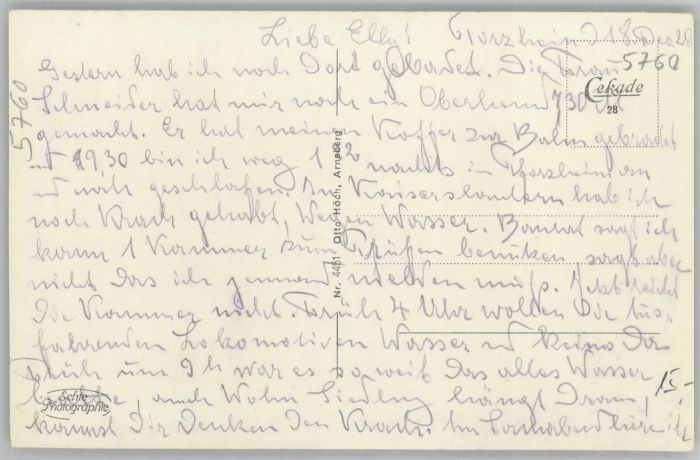 Liebe Elly! Pforzheim d 18 Dez 28
Gestern hab ich noch Dort gebadet. Die Frau
Schneider hat mir noch ein Oberhemd 730
gemacht. Er hat meinen Koffer zur Bahn gebracht
1930 bin ich weg 1 20 nachts in Pforzheim an
noch geschlafen. In Kaiserslautern hab ich
noch Krach gehabt, Wasser. sagt ich
kann 1 Kammer zum benutzen sagt aber
nicht das ich melden muß. Jetzt reicht
Die Kammer nicht. Früh 4 Uhr wollen Die aus-
fahrenden Lokomotiven Wasser u keins Da
Früh um 9 h war es so weit das alles Wasser
auch Wohn Siedlung hängt Dran,
kannst Dir Denken Den Krach. Am Sonnabend ich
5760
5760
Cekade
28
Nr. 4451 Otto Höch, Arneberg
Echte
Photographie
15.-